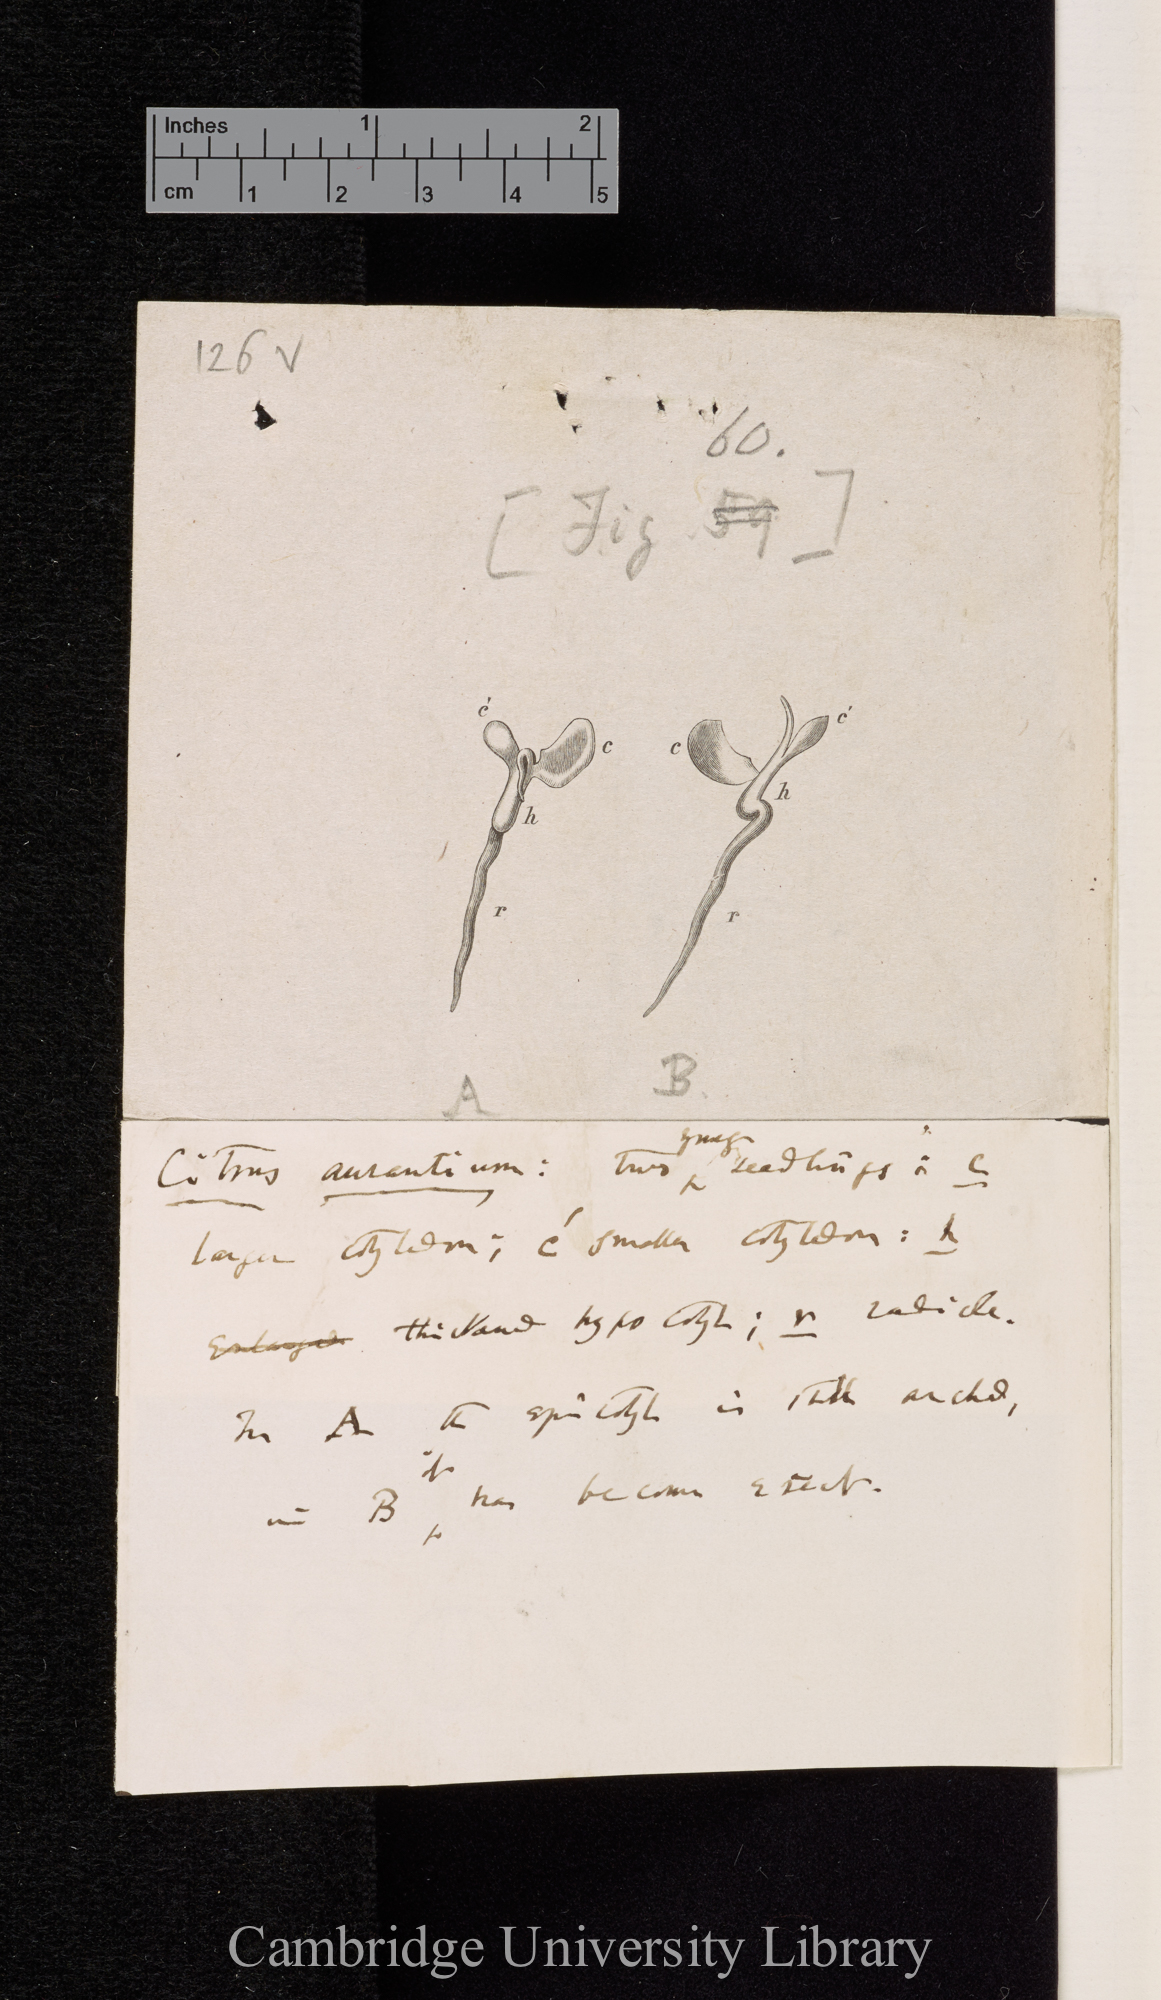 Inches 1 2
cm 1 2 3 4 5
126 v
60.
[Fig 59]
c' c c c'
h h
r r
A B
young
Citrus aurantium: two seedlings: c
larger cotyledon; c' smaller cotyledon: h
Enlarged thickened hypocotyl; r radicle.
In A the epicotyl is still arched,
it
in B has become erect.
Cambridge University Library